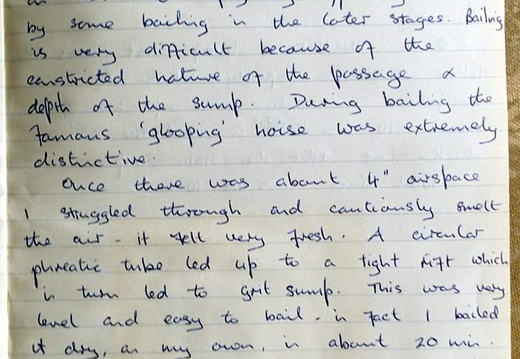 by some bailing in the later stages. Bailing
is very difficult because of the
constricted nature of the passage &
depth of the sump. During bailing the
famous 'glooping' noise was extremely
distinctive.
Once there was about 4" airspace
I struggled through and cautiously smelt
the air - it felt very fresh. A circular
phreatic tube led up to a tight rift which
in turn led to grit sump. This was very
level and easy to bail - in fact I bailed
it dry, on my own, in about 20 min.